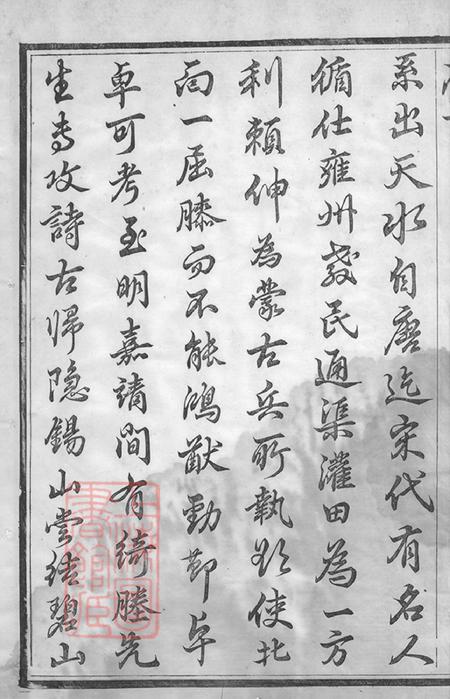 系出天水自唐迄宋代有名人
循仕雍州教民通渠灌田為一方
利賴伸為蒙古兵所執欲使北
向一屈膝而不能鴻猷勁節卓
卓可考至明嘉靖間有綺塍先
生専攻詩古歸隐錫山嘗結碧山